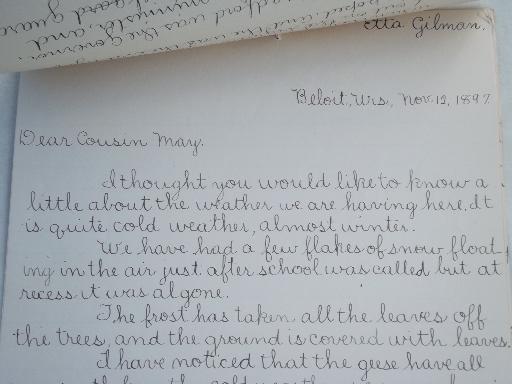 etta Gilman.
Beloit, Wis., Nov. 12, 1897
Dear Cousin May.
I thought you would like to know a
little about the weather we are having here. It
is quite cold weather, almost winter.
We have had a few flakes of snow float-
ing in the air just after school was called but at
recess it was al gone.
The frost has taken all the leaves off
the trees, and the ground is covered with leaves.
I have noticed that the geese have all